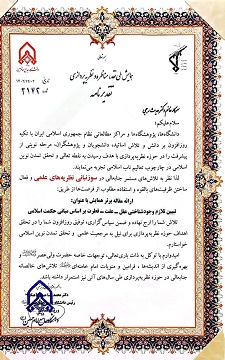 همایش ملی نقد، مناظره و نظریه پردازی
تقدیرنامه
۱۴۰۲
۲۱۷۲
سلام علیکم؛
دانشگاه‌ها، پژوهشگاه‌ها و مراکز مطالعاتی نظام جمهوری اسلامی ایران با تکیه
روزافزون بر دانش و تلاش اساتید، دانشجویان و پژوهشگران، مرحله نوینی از
پیشرفت را در حوزه نظریه‌پردازی با هدف رسیدن به نقطه تعالی و تحقق تمدن نوین
اسلامی در چارچوب تعالیم ناب اسلامی تجربه می‌نمایند.
لذا نظر به تلاش‌های مستمر جنابعالی در سوزنبانی نظریه‌های علمی و فعال
ساختن ظرفیت‌های بالقوه و استفاده مطلوب از فرصت‌ها از طریق:
ارائه مقاله برتر همایش با عنوان:
تبیین لازم وجودشناختی عقل ـ عفت ـ فطرت بر اساس مبانی حکمت اسلامی
تلاش شما را ارج نهاده و ضمن سپاس‌گزاری، توفیق روزافزون شما را در تحقق
اهداف حوزه نظریه‌پردازی برای نیل به مرجعیت علمی و تحقق تمدن نوین اسلامی
خواستارم.
امیدوارم با توکل به ذات باری‌تعالی، توجهات خاصه حضرت ولی‌عصر
بهره‌گیری از اندیشه‌ها، فرامین و منویات امام خامنه‌ای تلاش‌های خالصانه
جنابعالی در حوزه نظریه‌پردازی طی سال‌های آتی نیز استمرار داشته باشد.